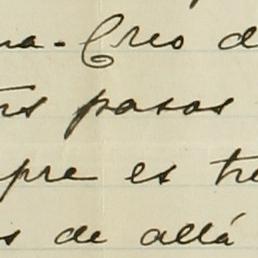 na - Creo d
rs pasos
pre es tre
s de allá